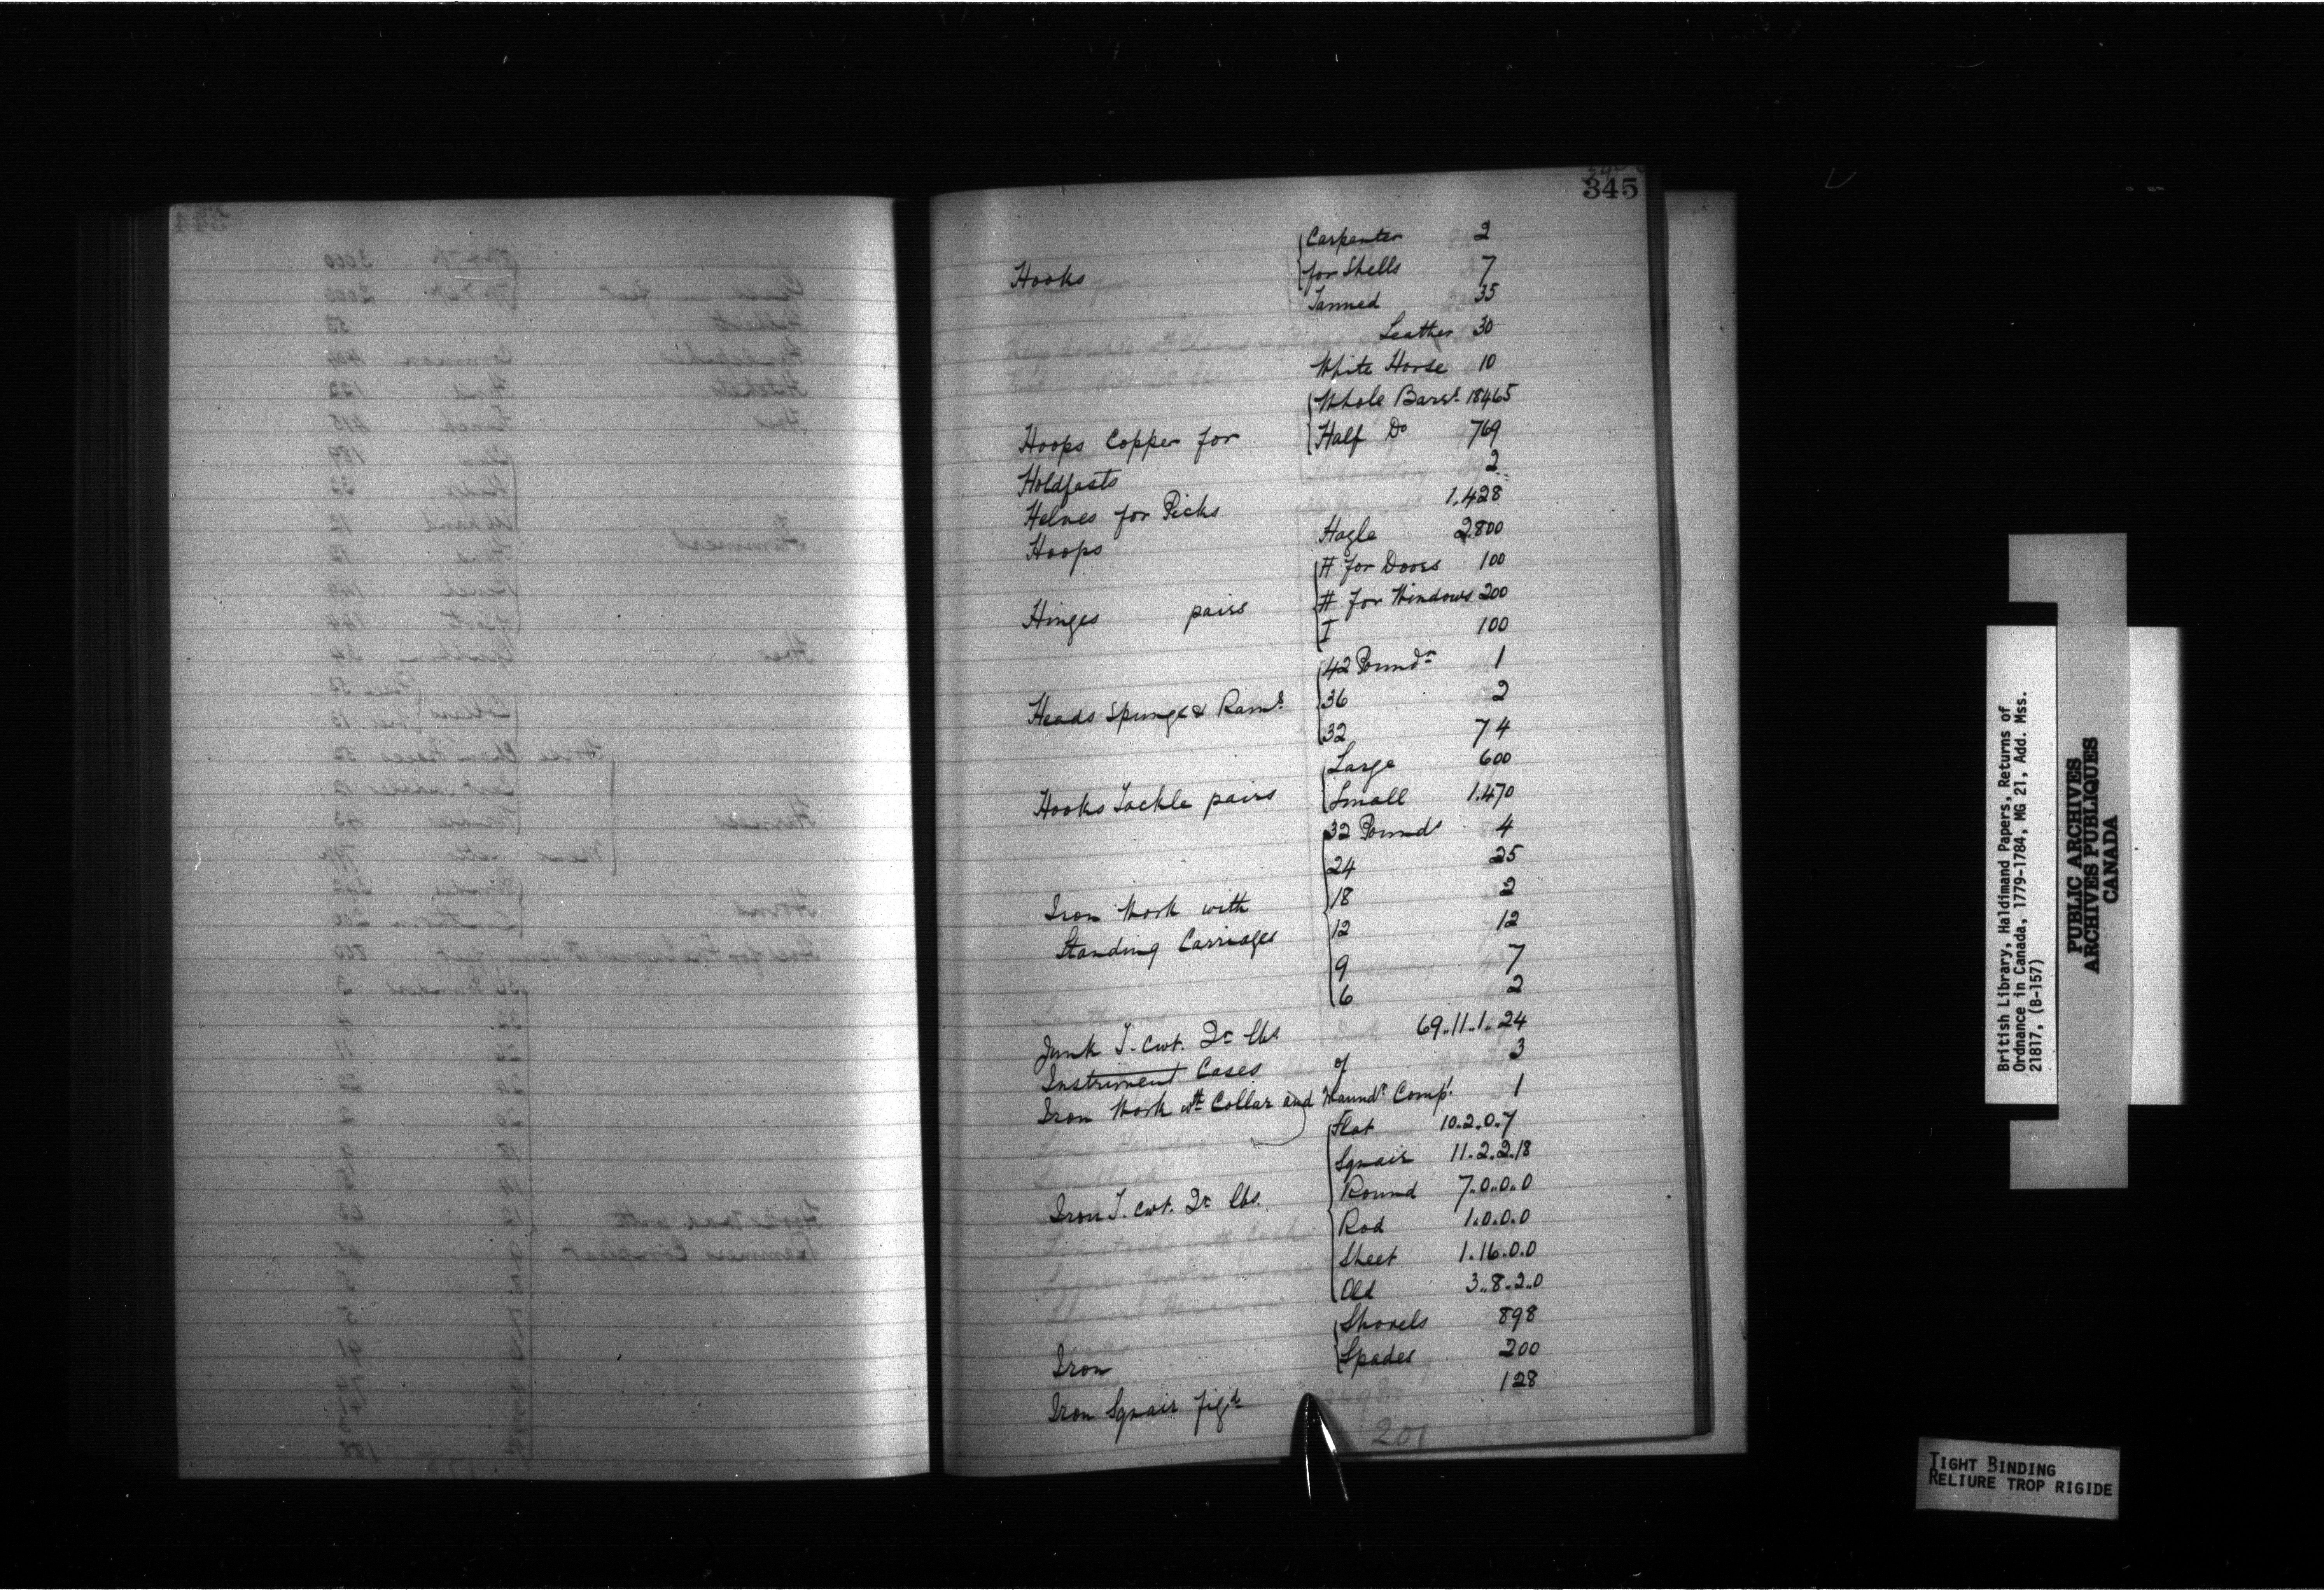 345
Hooks { Carpenter 2
for Shells 7
Tanned 35
Leather 30
White Horse 10
Hoops Copper for { Whole Barrs. 18465
Half Do 769
Holdfasts 2
Helves for Picks 1.428
Hoops Hagle 2.800
Hinges pairs { H for Doors 100
H for Windows 200
I 100
Heads Spunge & Rams. { 42 Poundr 1
36 2
32 74
Hooks Tackle pairs { Large 600
Small 1.470
Iron Work with
Standing Carriages { 32 Pounds 4
24 25
18 2
12 12
9 7
6 2
Junk T. Cwt. Qr. lbs 69..11..1..24
Instriment Cases of 3
Iron Work wth Collar and Maundl Compt. 1
Iron T. Cwt. Qr. lbs. { Flat 10.2.0.7
Squair 11.2.2.18
Round 7.0.0.0
Rod 1.0.0.0
Sheet 1.16.0.0
Old 3..8.2..0
Iron { Shovels 898
Spades 200
Iron Squair figd 128
201
British Library, Haldimand Papers, Returns of
Ordnance in Canada, 1779-1784, MG 21, Add. Mss.
21817, (B-157)
PUBLIC ARCHIVES
ARCHIVES PUBLIQUES
CANADA
TIGHT BINDING
RELIURE TROP RIGIDE